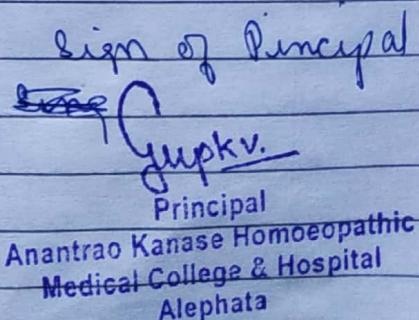 Sign of Pincipal
Principal
Anantrao Kanase Homoeopathic
Medical College & Hospital
Alephata